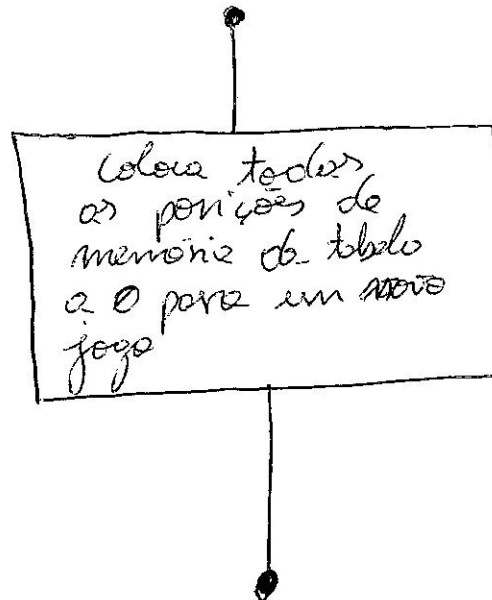 coloca todas
as posições de
memória da tabela
a 0 para um novo
jogo